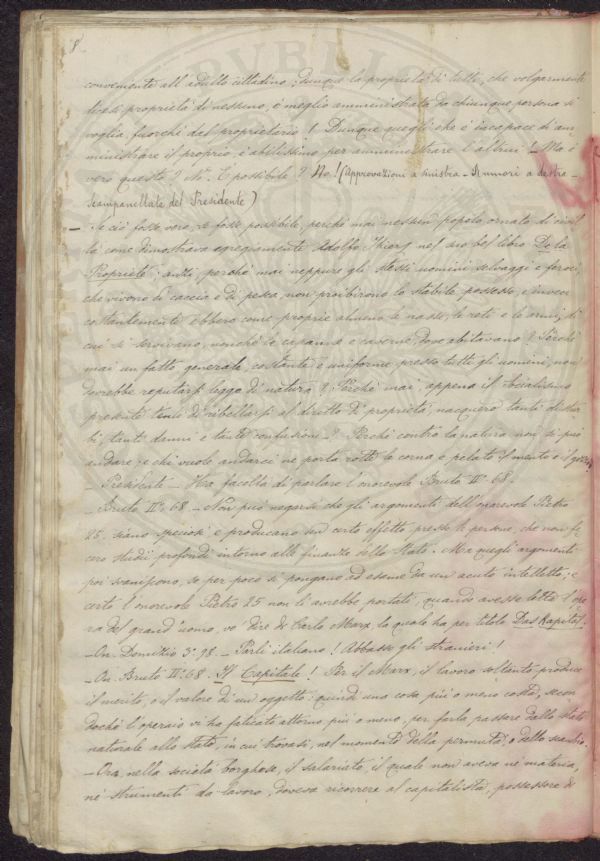 8
conveniente all'adulto cittadino; dunque la proprietà di tutti, che volgarmente
dicesi proprietà di nessuno, è meglio amministrata da chiunque persona si
voglia, fuorchè dal proprietario! Dunque quegli che è incapace di am-
ministrare il proprio, è abilissimo per amministrare l'altrui! Ma è
vero questo? No. È possibile? No! (Approvazioni a sinistra - Rumori a destra -
scampanellate del Presidente)
- Se ciò fosse vero, se fosse possibile, perchè mai nessun popolo ornato di civil-
tà come dimostrava egregiamente Adolfo Thiers nel suo bel libro De la
Proprieté: anzi, perchè mai neppure gli stessi uomini selvaggi e feroci,
che vivono di caccia e di pesca, non proibirono lo stabile possesso, e invece
costantemente ebbero come proprie almeno le nasse, le reti e le armi, di
cui si servivano, nonchè le capanne e caverne, dove abitavano? Perchè
mai un fatto generale, costante e uniforme, presso tutti gli uomini, non
dovrebbe reputarsi legge di natura? Perchè mai, appena il socialismo
presente tentò di ribellarsi al diritto di proprietà, nacquero tanti distur-
bi, tanti danni e tante confusioni? Perchè contro la natura non si può
andare; e chi vuole andarci ne porta rotte le corna e pelato il mento e il gozzo
- Presidente - Ha facoltà di parlare l'onorevole Bruto II°. 68.
- Bruto II°. 68 - Non può negarsi che gli argomenti dell'onorevole Pietro
25. siano speciosi e producano un certo effetto presso le persone, che non fe-
cero studii profondi intorno alle finanze dello Stato. Ma quegli argomenti
poi svaniscono, se per poco si pongano ad esame da un acuto intelletto; e
certo l'onorevole Pietro 25 non li avrebbe portati, quando avesse letta l'ope-
ra del grand'uomo, vo' dire di Carlo Marx, la quale ha per titolo Das Kapital.
- On. Domizio 3°. 98. - Parli italiano! Abbasso gli stranieri!
- On. Bruto II°. 68. Il Capitale! Per il Marx, il lavoro soltanto produce
il merito, o il valore di un oggetto: quindi una cosa più o meno costa, secon-
dochè l'operaio vi ha faticato attorno più o meno, per farla passare dallo stato
naturale allo stato, in cui trovasi, nel momento della permuta o dello scambio.
- Ora, nella società borghese, il salariato, il quale non aveva nè materia,
nè strumenti da lavoro, doveva ricorrere al capitalista, possessore di